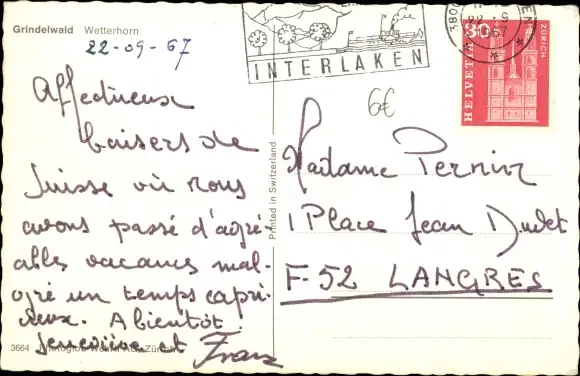 Grindelwald Wetterhorn
22-09-67
Affectueux
baisers de
Suisse où nous
avons passé d'agré-
ables vacances mal-
gré un temps capri-
cieux. A bientôt.
Geneviève et Franz
3664
Printed in Switzerland
INTERLAKEN
6€
HELVETIA 30
ZÜRICH
Madame Pernin
1 Place Jean Duvet
F-52 LANGRES